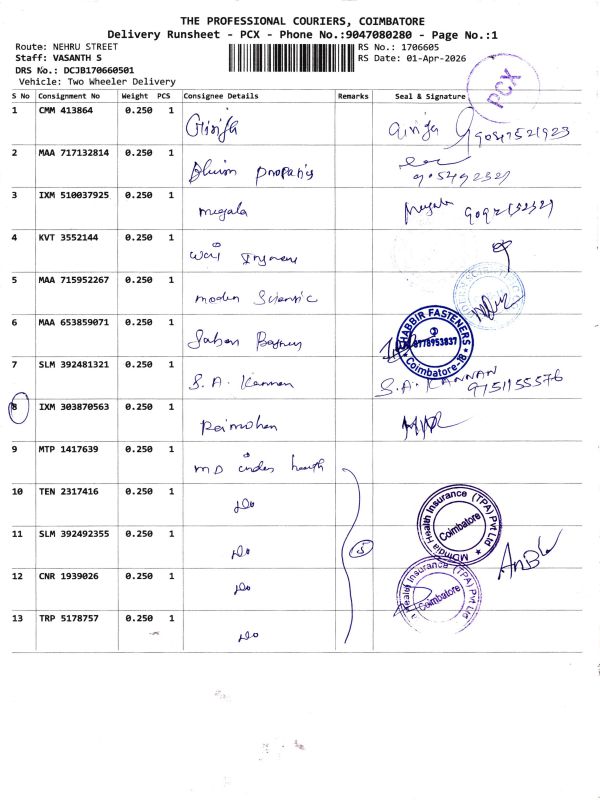 THE PROFESSIONAL COURIERS, COIMBATORE
Delivery Runsheet - PCX - Phone No.:9047080280 - Page No.:1
Route: NEHRU STREET
RS No.: 1706605
Staff: VASANTH S
RS Date: 01-Apr-2026
DRS No.: DCJB170660501
Vehicle: Two Wheeler Delivery
PCX
S No Consignment No Weight PCS Consignee Details Remarks Seal & Signature
1 CMM 413864 0.250 1 Girija Girija
2 MAA 717132814 0.250 1
3 IXM 510037925 0.250 1 megala Megala
4 KVT 3552144 0.250 1
5 MAA 715952267 0.250 1 modern Scientific
6 MAA 653859071 0.250 1
SHABBIR FASTENERS
8778953837
Coimbatore-18
7 SLM 392481321 0.250 1 S. A. Kannan S. A. KANNAN
9751155576
8 IXM 303870563 0.250 1
9 MTP 1417639 0.250 1 MD india health
10 TEN 2317416 0.250 1 Do
MDIndia Health Insurance (TPA) Pvt Ltd
Coimbatore
11 SLM 392492355 0.250 1 Do 5
12 CNR 1939026 0.250 1 Do
Health Insurance (TPA) Pvt Ltd
Coimbatore
13 TRP 5178757 0.250 1 Do